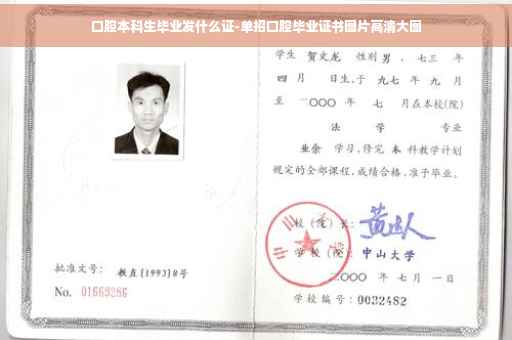 口腔本科生毕业发什么证-单招口腔毕业证书图片高清大图
学生 贺文龙 性别 男 ，七三 年
四 月 日生，于 九七 年 九 月
至 二〇〇〇 年 七 月在本校(院)
法 学 专业
业余 学习，修完 本 科教学计划
规定的全部课程，成绩合格，准予毕业。
校 (院) 长：
学 校 (院)： 中山大学
二〇〇〇 年 七 月 一 日
学校编号：0032482
批准文号： 教直[1993]8号
No. 01669286